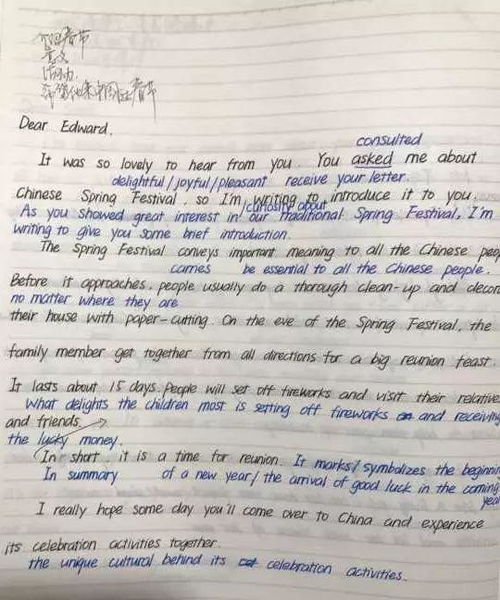 春节
意义
活动
希望他来中国过春节
Dear Edward,
consulted
It was so lovely to hear from you. You asked me about
delightful/joyful/pleasant receive your letter.
Chinese Spring Festival, so I'm writing to introduce it to you.
/curiosity about
As you showed great interest in our traditional Spring Festival, I'm
writing to give you some brief introduction.
The Spring Festival conveys important meaning to all the Chinese peop
carries be essential to all the Chinese people.
Before it approaches, people usually do a thorough clean-up and decora
no matter where they are
their house with paper-cutting. On the eve of the Spring Festival, the
family member get together from all directions for a big reunion feast.
It lasts about 15 days. People will set off fireworks and visit their relative
What delights the children most is setting off fireworks and receiving
and friends
the lucky money.
In short, it is a time for reunion. It marks/symbolizes the beginnin
In summary of a new year/the arrival of good luck in the coming
year
I really hope some day you'll come over to China and experience
its celebration activities together.
the unique cultural behind its celebration activities.